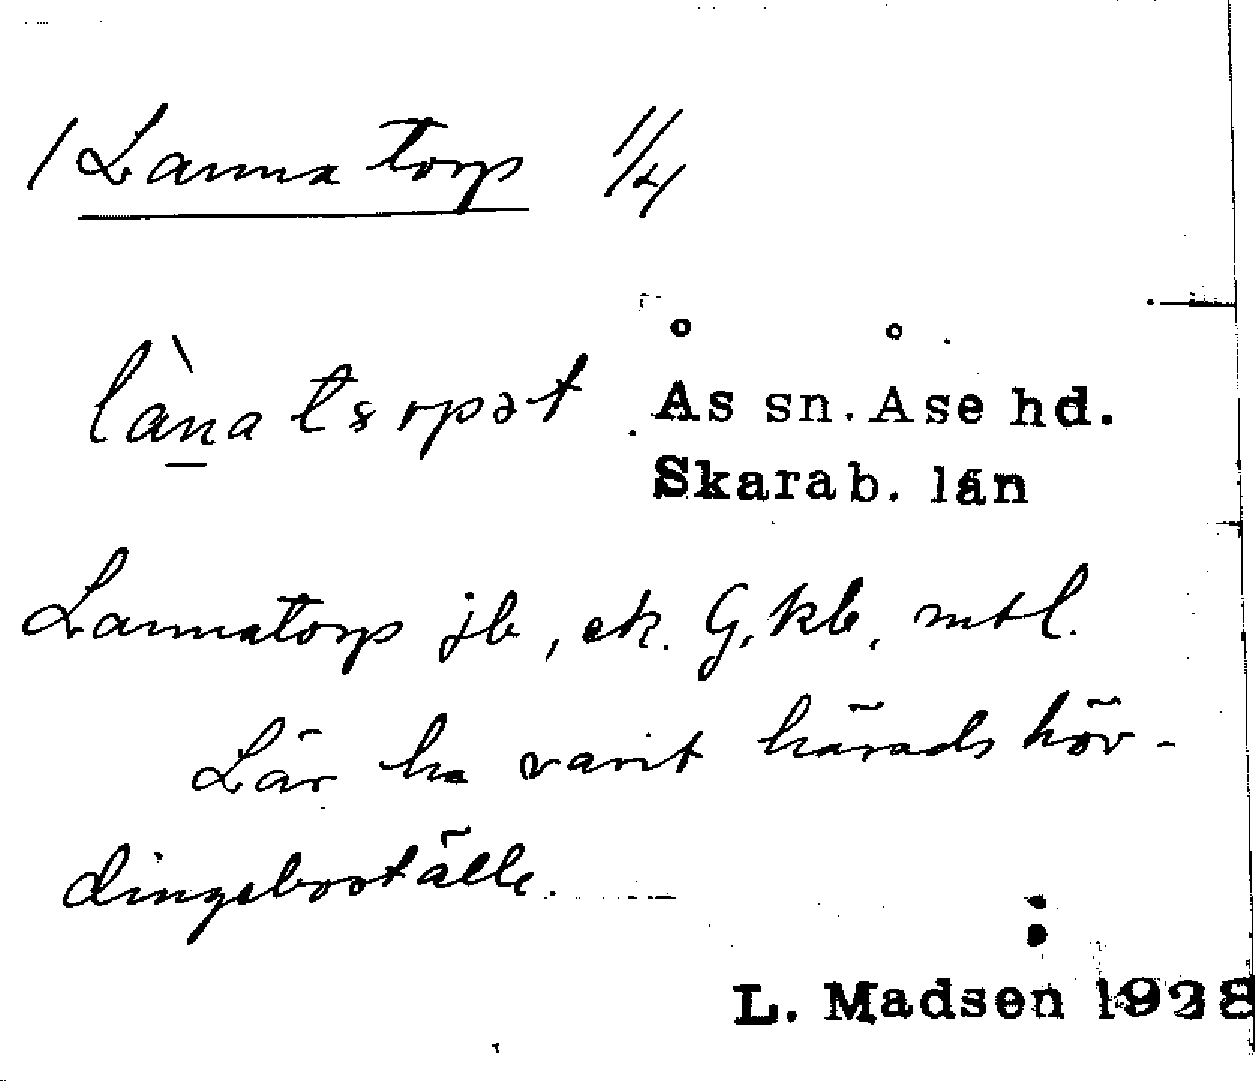 / Lannatorp 1/4
làn̲a tsrpət
Ås sn. Åse hd.
Skarab. län
Lannatorp jb, ek. G, kb, mtl.
Lär ha varit häradshöv-
dingeboställe.
L. Madsen 1928